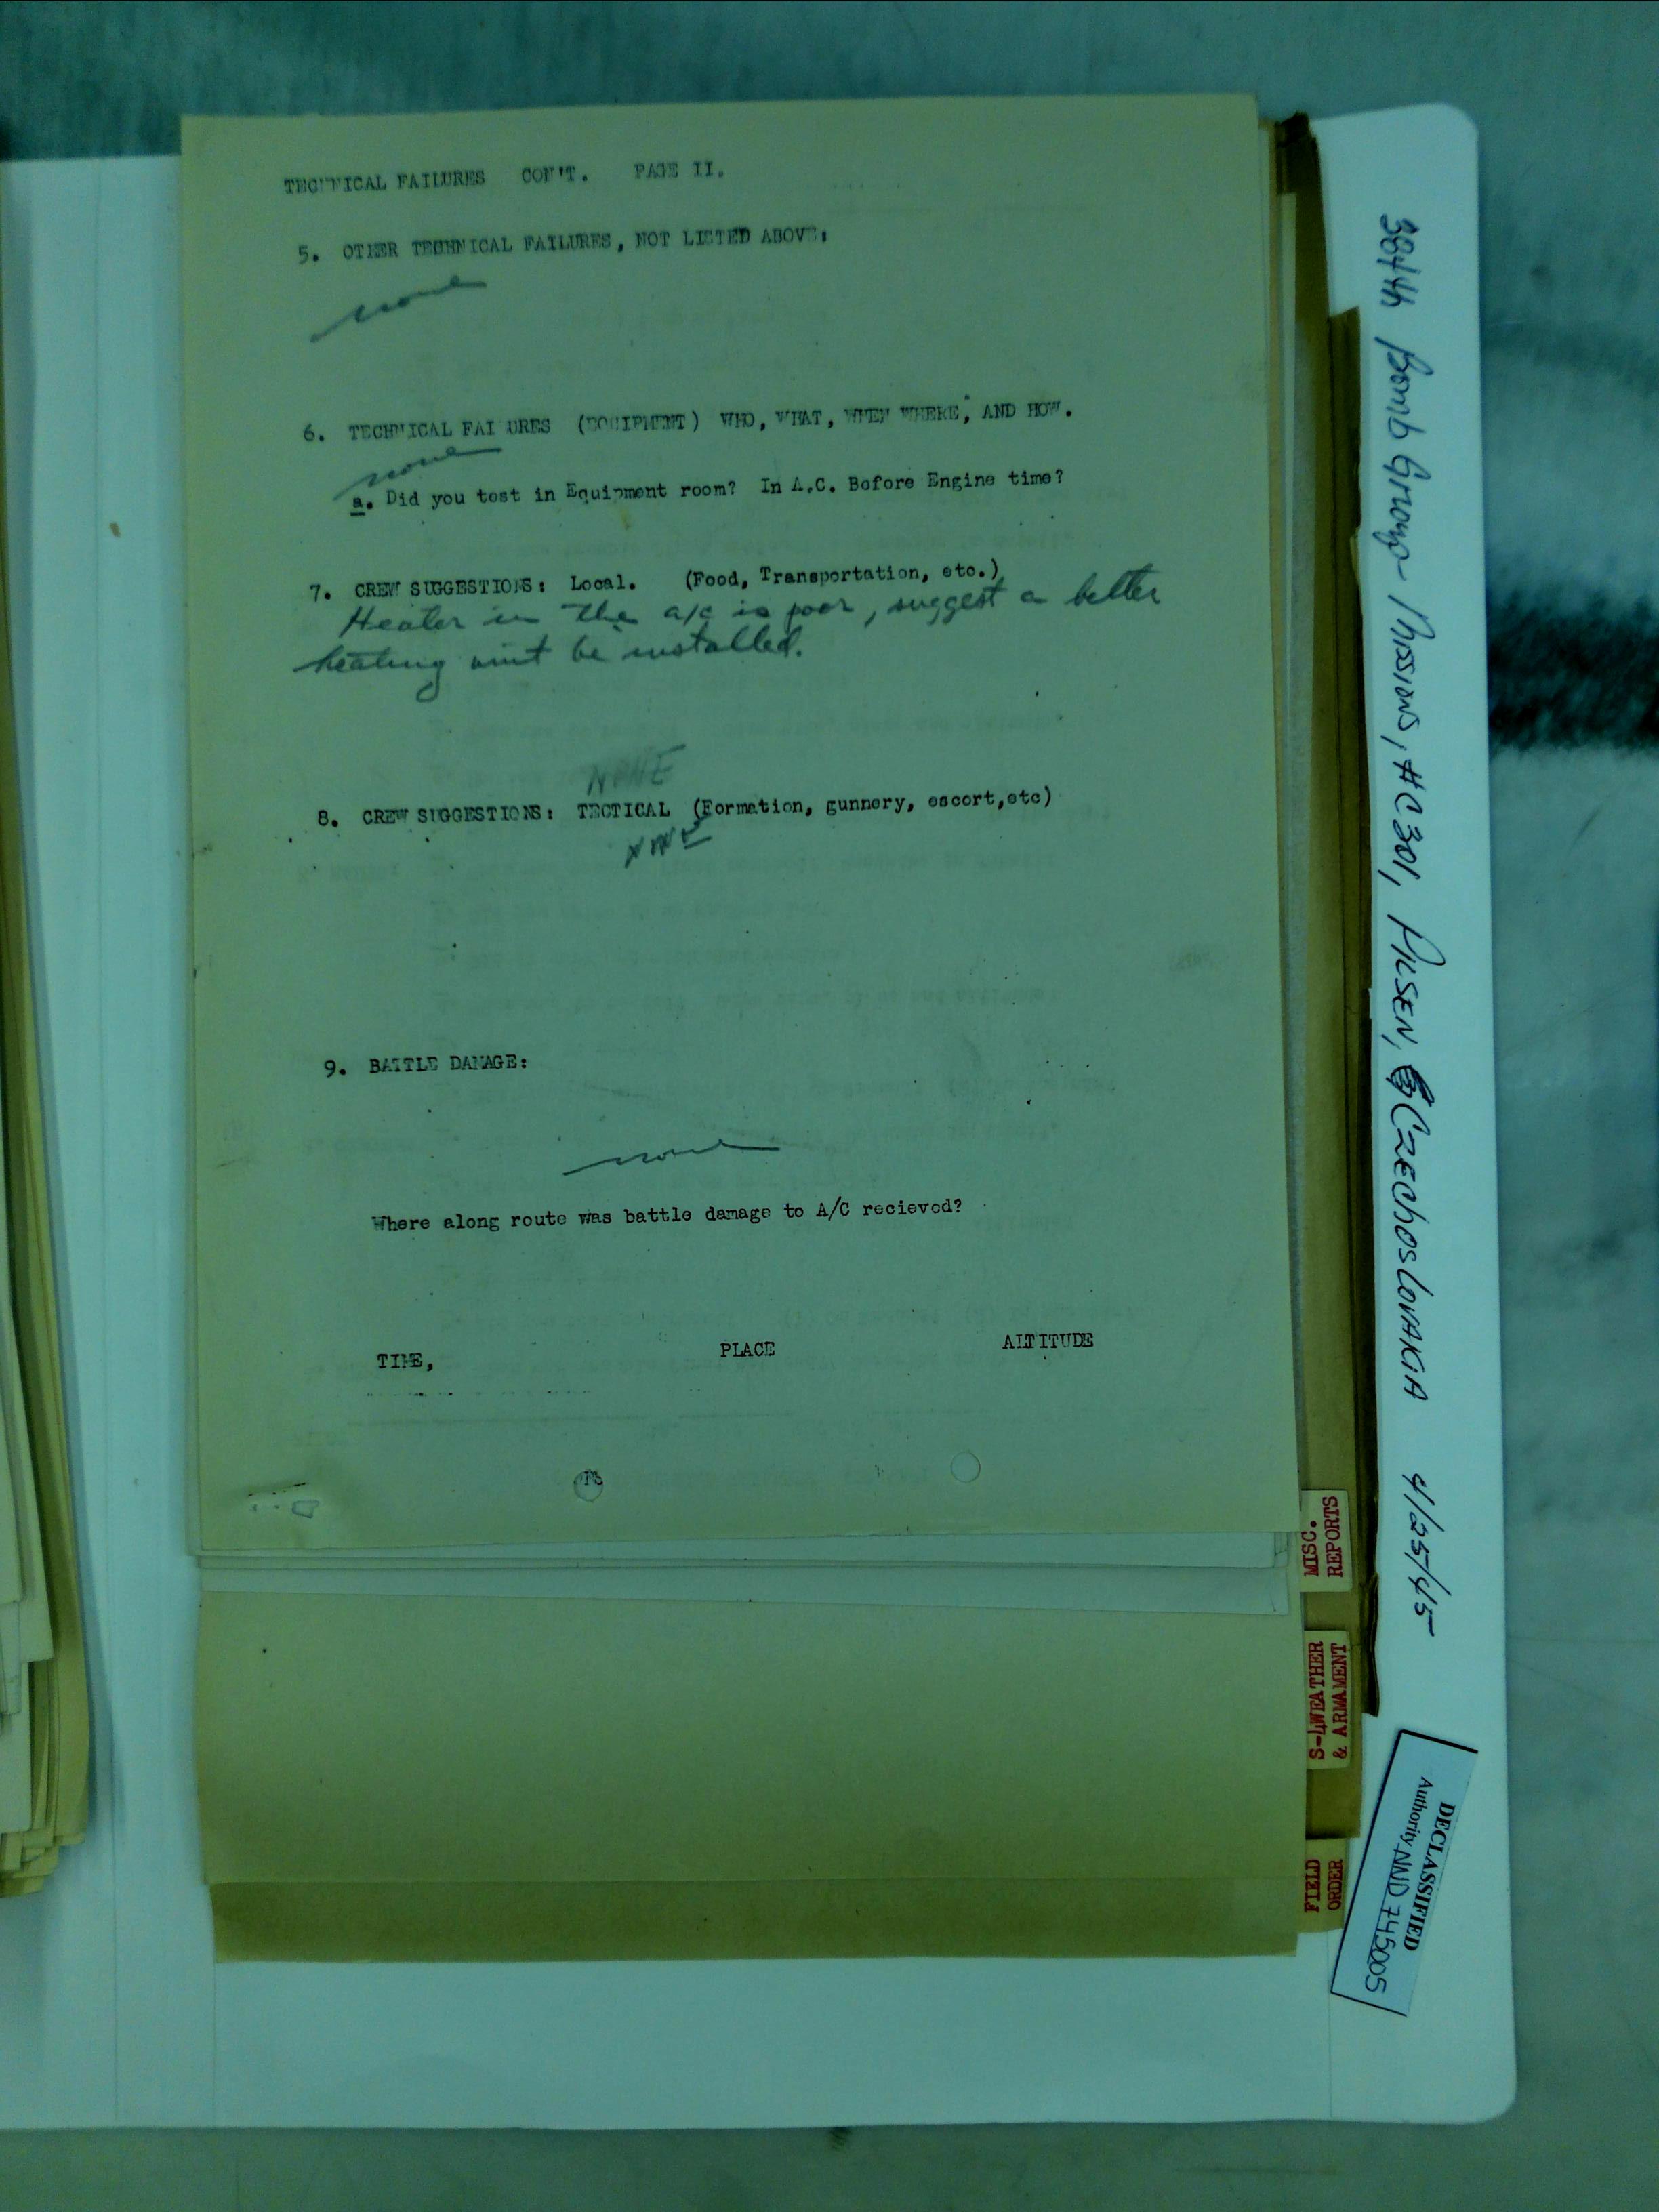 TECHNICAL FAILURES CON'T. PAGE II.
5. OTHER TECHNICAL FAILURES, NOT LISTED ABOVE:
none
6. TECHNICAL FAI URES (EQUIPMENT) WHO, WHAT, WHEN WHERE, AND HOW.
none
a. Did you test in Equipment room? In A.C. Before Engine time?
7. CREW SUGGESTIONS: Local. (Food, Transportation, etc.)
Heater in the a/c is poor, suggest a better
heating unit be installed.
NONE
8. CREW SUGGESTIONS: TECTICAL (Formation, gunnery, escort,etc)
NONE
9. BATTLE DAMAGE:
none
Where along route was battle damage to A/C recieved?
TIME, PLACE ALTITUDE
MISC.
REPORTS
S-4WEATHER
& ARMAMENT
FIELD
ORDER
384th Bomb Group Missions, #C301, PILSEN, CZECHOSLOVAKIA 4/25/45
DECLASSIFIED
Authority NND 745005